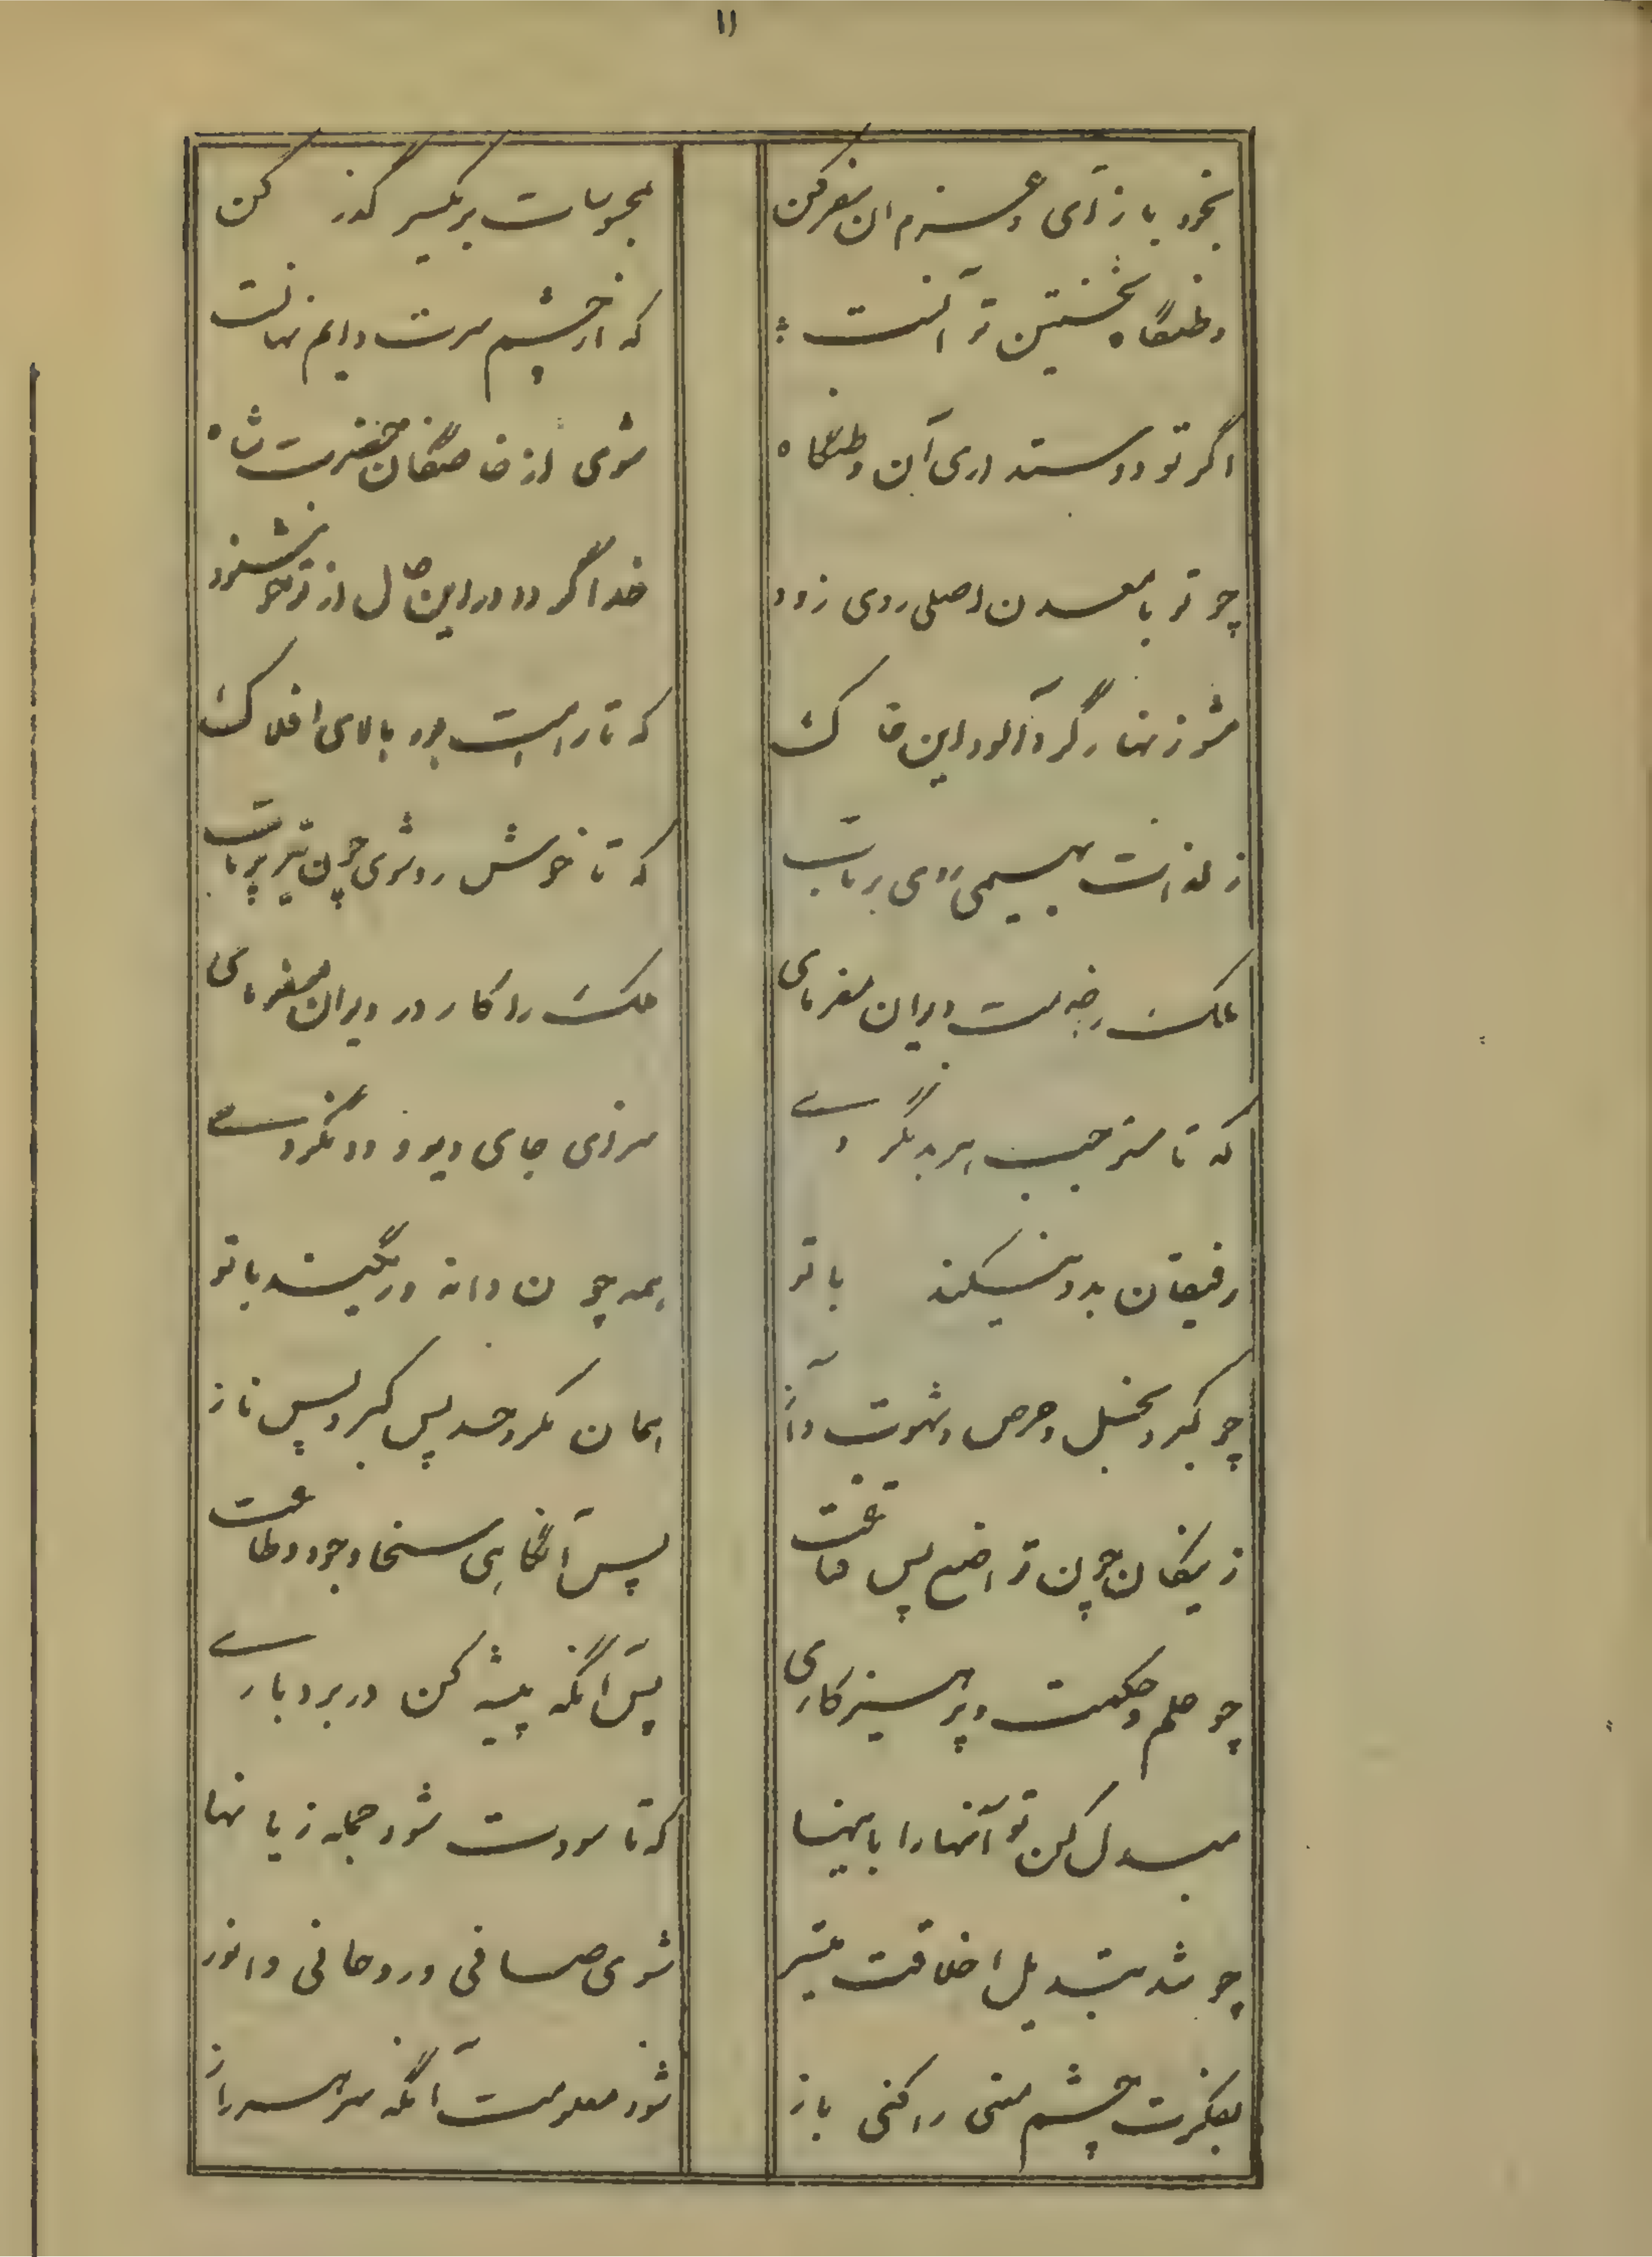 ۱۱
بخود باز آی و عزم ان سفر کن
بمحبوبات بر یکسر گذر کن
وطنگاه نخستین تو آنست
که از چشم سرت دایم نهانست
اگر تو دوستداری آن وطنگاه
شوی از خاصگان حضرت شاه
چو تو با معدن اصلی روی زود
خدا گردد در این حال از تو خوشنود
مشو زنهار گرد آلود این خاک
که تا راهت بود بالای افلاک
ز لذات بهیمی روی برتاب
که تا خوش رو شوی چون تیر پرتاب
ملک را کار در دیوان مفرمای
که تا مستوجب هر بد نگردے
سرای جای دیو و دد نگردے
رفیقان بدو نیکند با تو
همه چون دانه در یکند با تو
چو کبر و بخل و حرص و شهوت و آز
همان مکر و حسد پس کبر و پس ناز
ز نیکان چون تواضع پس قناعت
پس آنگاهی سخا و جود و طاعت
چو حلم و حکمت و پرهیزکاری
پس آنگه پیشه کن در بردبارے
مبدل کن تو آنها را باینها
که تا سودت شود جمله زیانها
چو شد تبدیل اخلاقت میسر
شوی صافی و روحانی و انور
بفکرت چشم معنی را کنی باز
شود معلومت آنگه سر هر راز